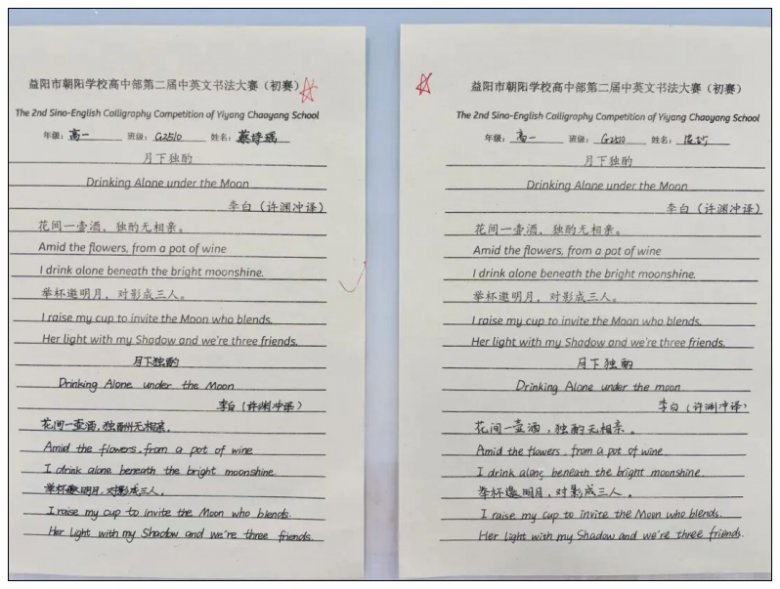 益阳市朝阳学校高中部第二届中英文书法大赛（初赛）
The 2nd Sino-English Calligraphy Competition of Yiyang Chaoyang School
年级：高一 班级：G2510 姓名：蔡诗瑶
月下独酌
Drinking Alone under the Moon
李白（许渊冲译）
花间一壶酒，独酌无相亲。
Amid the flowers, from a pot of wine
I drink alone beneath the bright moonshine.
举杯邀明月，对影成三人。
I raise my cup to invite the Moon who blends.
Her light with my Shadow and we're three friends.
月下独酌
Drinking Alone under the Moon
李白（许渊冲译）
花间一壶酒，独酌无相亲．
Amid the flowers, from a pot of wine
I drink alone beneath the bright moonshine
举杯邀明月，对影成三人．
I raise my cup to invite the Moon who blends.
Her light with my Shadow and we're three friends.
益阳市朝阳学校高中部第二届中英文书法大赛（初赛）
The 2nd Sino-English Calligraphy Competition of Yiyang Chaoyang School
年级：高一 班级：G2510 姓名：
月下独酌
Drinking Alone under the Moon
李白（许渊冲译）
花间一壶酒，独酌无相亲。
Amid the flowers, from a pot of wine
I drink alone beneath the bright moonshine.
举杯邀明月，对影成三人。
I raise my cup to invite the Moon who blends.
Her light with my Shadow and we're three friends.
月下独酌
Drinking Alone under the moon
李白（许渊冲译）
花间一壶酒，独酌无相亲。
Amid the flowers, from a pot of wine
I drink alone beneath the bright moonshine.
举杯邀明月，对影成三人。
I raise my cup to invite the Moon who blends.
Her light with my Shadow and we're three friends.